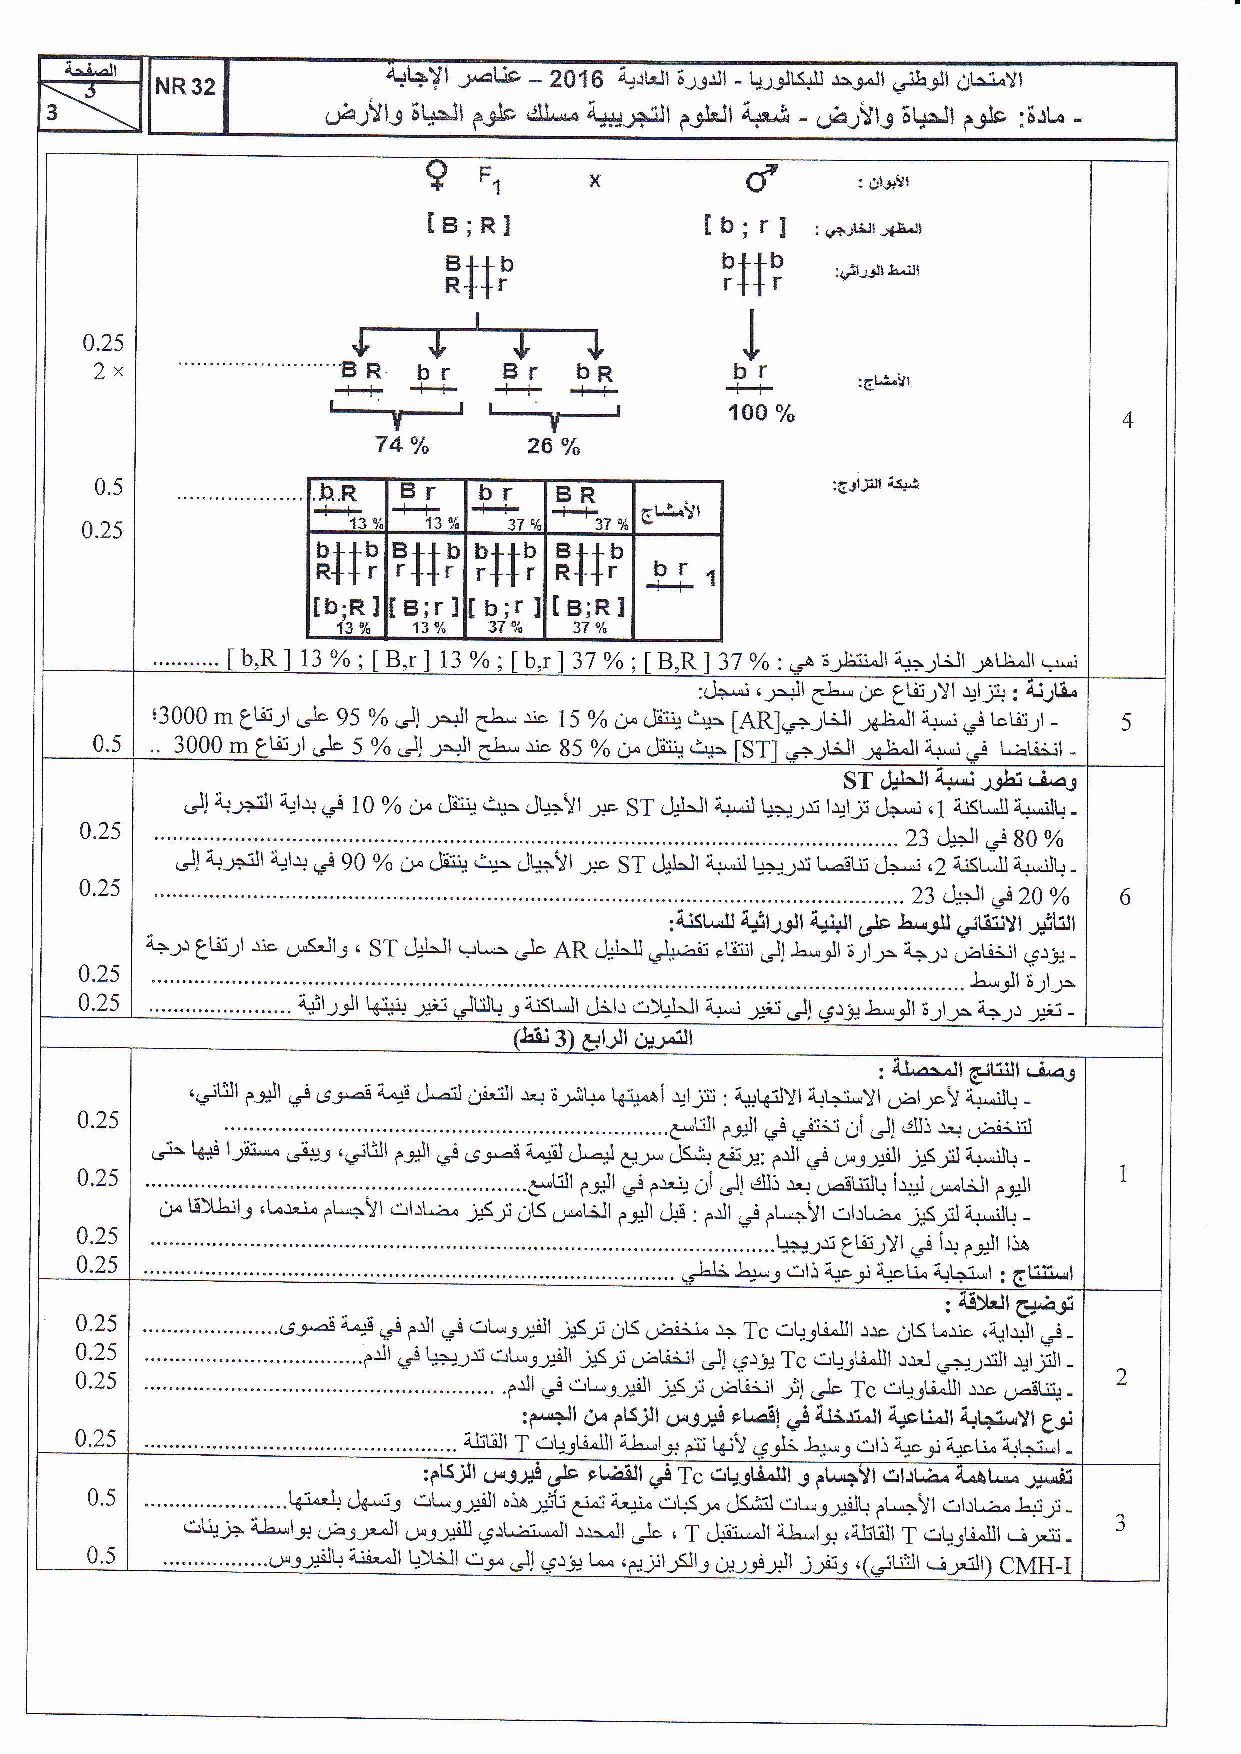 الصفحة
3
3
NR 32
الامتحان الوطني الموحد للبكالوريا - الدورة العادية 2016 – عناصر الإجابة
- مادة: علوم الحياة والأرض - شعبة العلوم التجريبية مسلك علوم الحياة والأرض
الأبوان : ♂ x F1 ♀
المظهر الخارجي : [ b ; r ] [ B ; R ]
النمط الوراثي: b b B b
r r R r
0.25
2 ×
الأمشاج: b r b R B r b r B R
100 %
26 % 74 %
4
0.5
شبكة التزاوج:
0.25
الأمشاج B R b r B r b R
37 % 37 % 13 % 13 %
b r 1 B b b b B b b b
R r r r r r R r
[ B;R ] [ b;r ] [ B;r ] [ b;R ]
37 % 37 % 13 % 13 %
نسب المظاهر الخارجية المنتظرة هي : [ B,R ] 37 % ; [ b,r ] 37 % ; [ B,r ] 13 % ; [ b,R ] 13 % ...........
5
مقارنة : بتزايد الارتفاع عن سطح البحر، نسجل:
- ارتفاعا في نسبة المظهر الخارجي[AR] حيث ينتقل من % 15 عند سطح البحر إلى % 95 على ارتفاع 3000 m؛
- انخفاضا في نسبة المظهر الخارجي [ST] حيث ينتقل من % 85 عند سطح البحر إلى % 5 على ارتفاع 3000 m .. 0.5
6
وصف تطور نسبة الحليل ST
- بالنسبة للساكنة 1، نسجل تزايدا تدريجيا لنسبة الحليل ST عبر الأجيال حيث ينتقل من % 10 في بداية التجربة إلى
% 80 في الجيل 23 ........ 0.25
- بالنسبة للساكنة 2، نسجل تناقصا تدريجيا لنسبة الحليل ST عبر الأجيال حيث ينتقل من % 90 في بداية التجربة إلى
% 20 في الجيل 23 ........ 0.25
التأثير الانتقائي للوسط على البنية الوراثية للساكنة:
- يؤدي انخفاض درجة حرارة الوسط إلى انتقاء تفضيلي للحليل AR على حساب الحليل ST ، والعكس عند ارتفاع درجة
حرارة الوسط ........ 0.25
- تغير درجة حرارة الوسط يؤدي إلى تغير نسبة الحليلات داخل الساكنة و بالتالي تغير بنيتها الوراثية ........ 0.25
التمرين الرابع (3 نقط)
1
وصف النتائج المحصلة :
- بالنسبة لأعراض الاستجابة الالتهابية : تتزايد أهميتها مباشرة بعد التعفن لتصل قيمة قصوى في اليوم الثاني،
لتنخفض بعد ذلك إلى أن تختفي في اليوم التاسع........ 0.25
- بالنسبة لتركيز الفيروس في الدم: يرتفع بشكل سريع ليصل لقيمة قصوى في اليوم الثاني، ويبقى مستقرا فيها حتى
اليوم الخامس ليبدأ بالتناقص بعد ذلك إلى أن ينعدم في اليوم التاسع........ 0.25
- بالنسبة لتركيز مضادات الأجسام في الدم : قبل اليوم الخامس كان تركيز مضادات الأجسام منعدما، وانطلاقا من
هذا اليوم بدأ في الارتفاع تدريجيا........ 0.25
استنتاج : استجابة مناعية نوعية ذات وسيط خلطي ........ 0.25
2
توضيح العلاقة :
- في البداية، عندما كان عدد اللمفاويات Tc جد منخفض كان تركيز الفيروسات في الدم في قيمة قصوى........ 0.25
- التزايد التدريجي لعدد اللمفاويات Tc يؤدي إلى انخفاض تركيز الفيروسات تدريجيا في الدم........ 0.25
- يتناقص عدد اللمفاويات Tc على إثر انخفاض تركيز الفيروسات في الدم. ........ 0.25
نوع الاستجابة المناعية المتدخلة في إقصاء فيروس الزكام من الجسم:
- استجابة مناعية نوعية ذات وسيط خلوي لأنها تتم بواسطة اللمفاويات T القاتلة ........ 0.25
3
تفسير مساهمة مضادات الأجسام و اللمفاويات Tc في القضاء على فيروس الزكام:
- ترتبط مضادات الأجسام بالفيروسات لتشكل مركبات منيعة تمنع تأثير هذه الفيروسات وتسهل بلعمتها........ 0.5
- تتعرف اللمفاويات T القاتلة، بواسطة المستقبل T ، على المحدد المستضادي للفيروس المعروض بواسطة جزيئات
CMH-I (التعرف الثنائي)، وتفرز البرفورين والكرانزيم، مما يؤدي إلى موت الخلايا المعفنة بالفيروس........ 0.5